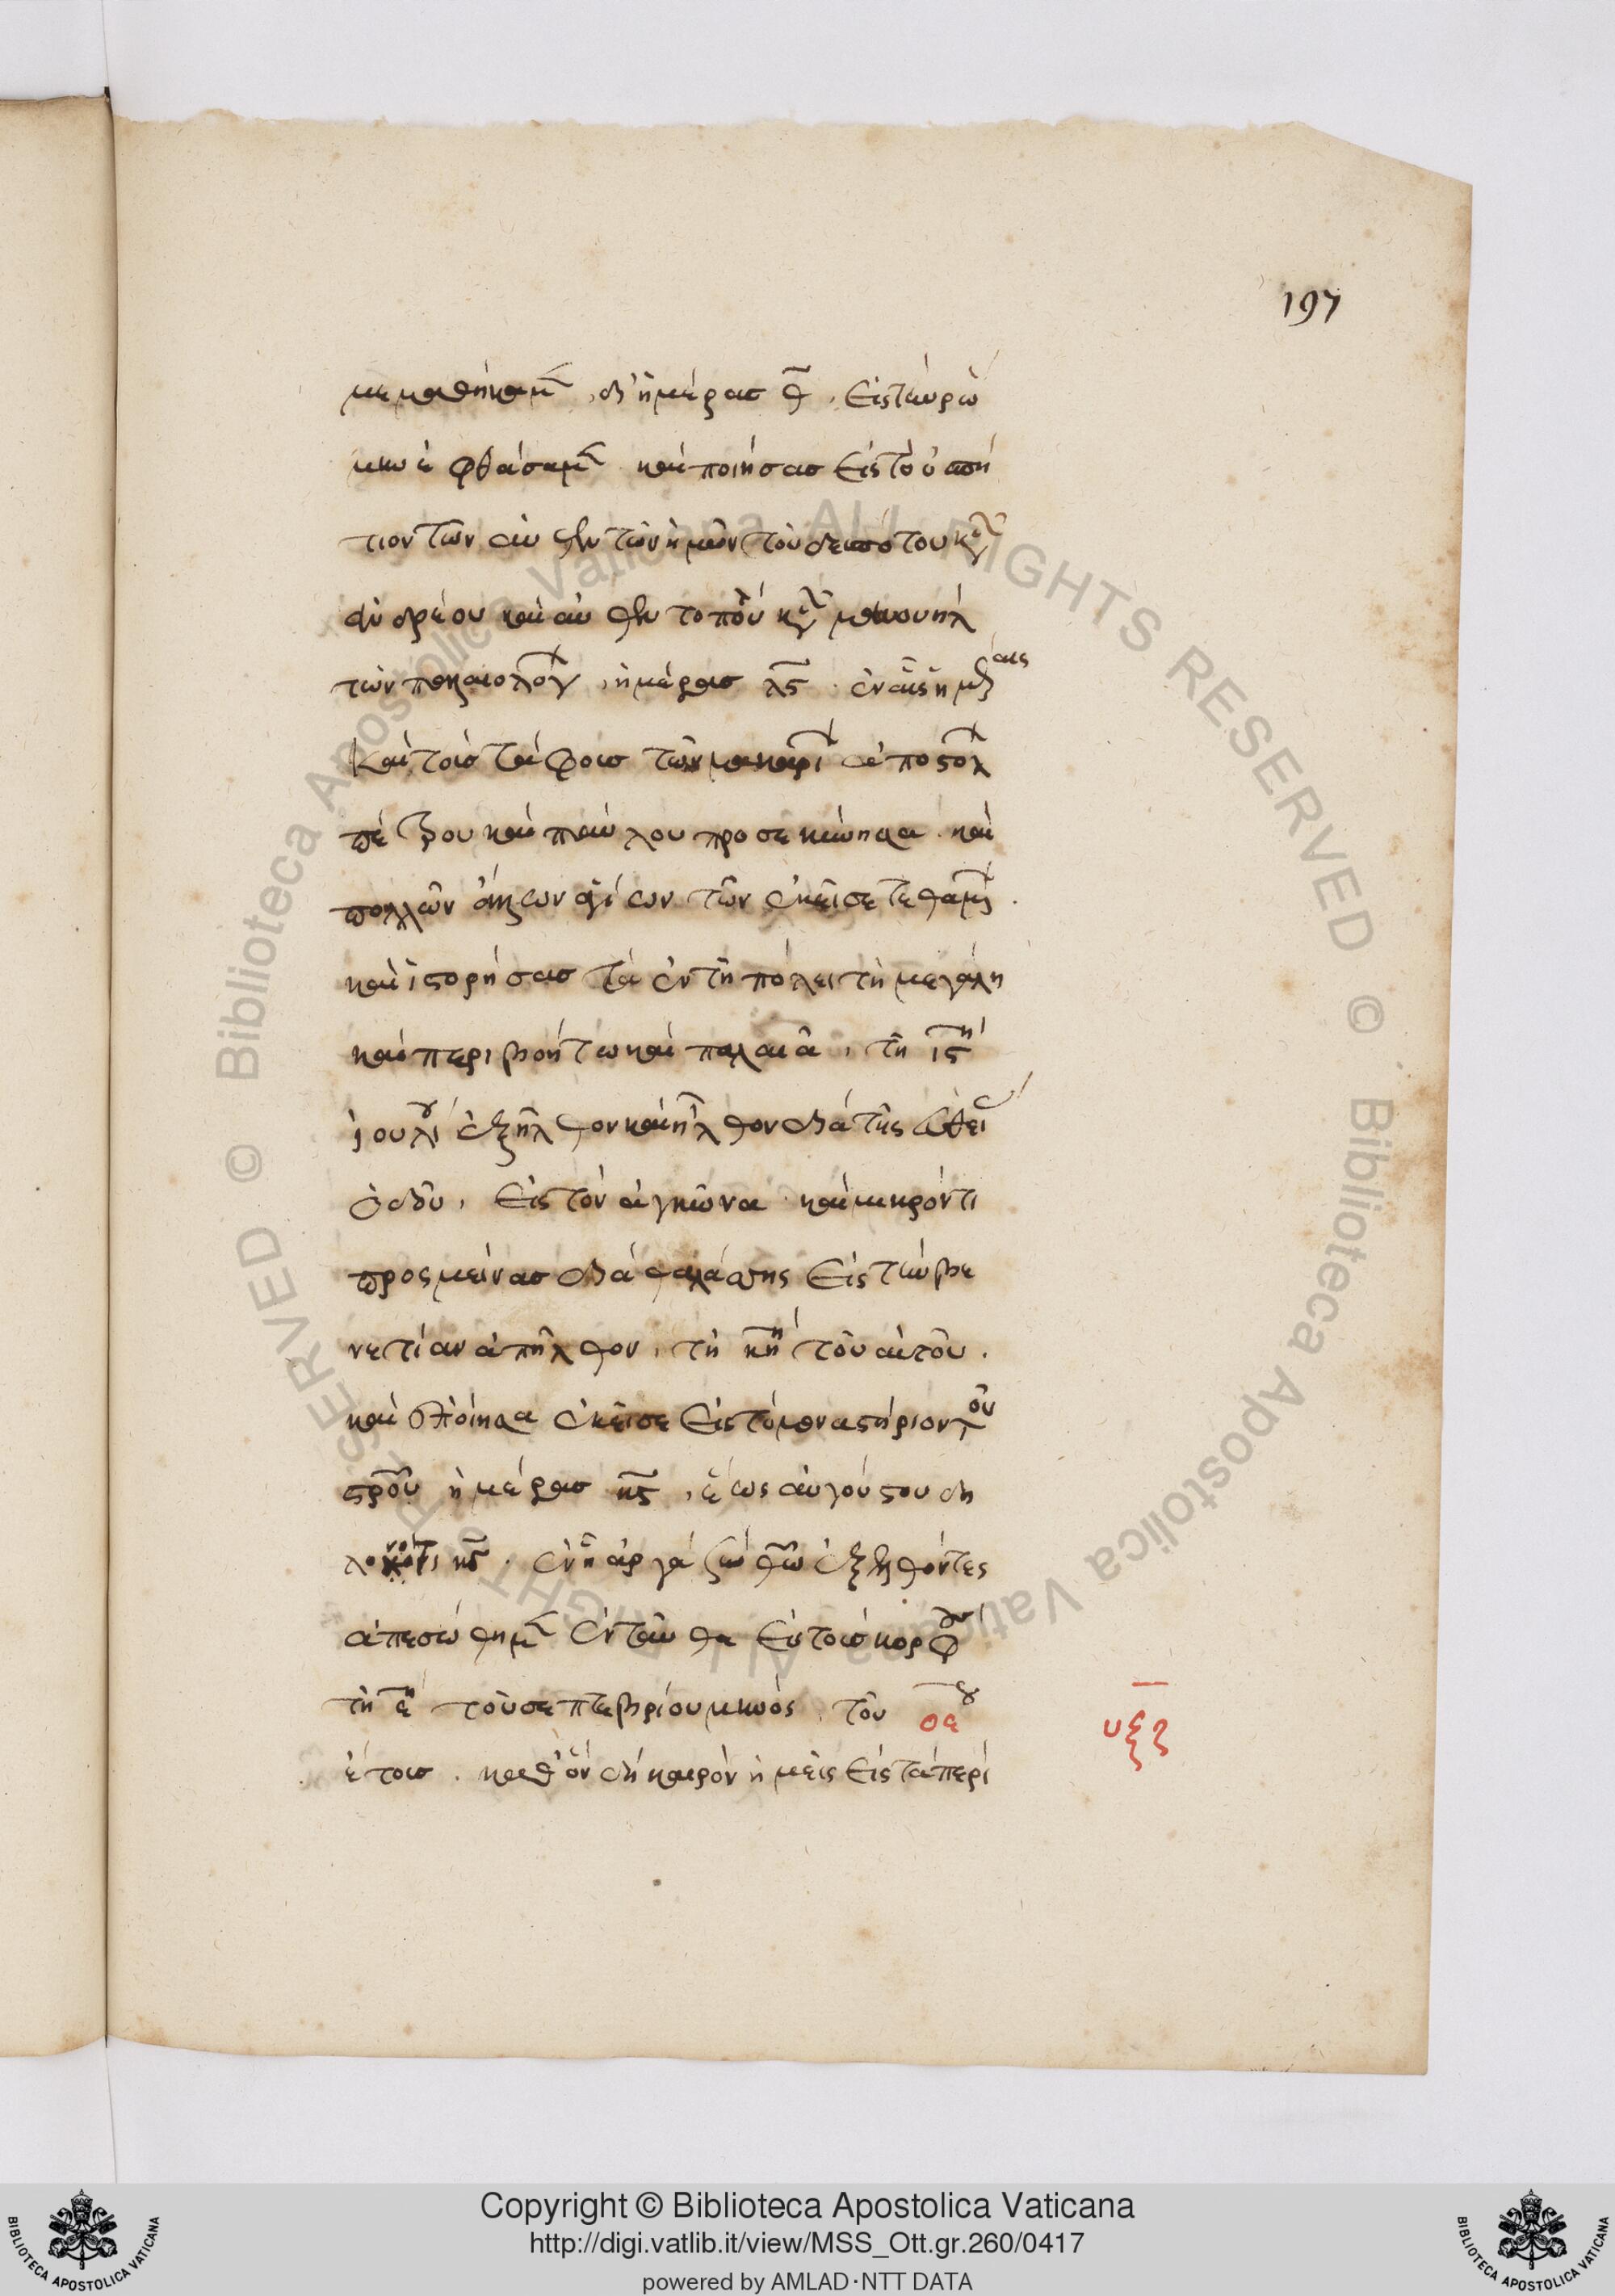 197
μεμαθήκαμ(εν), δι' ἡμέρας θ̅. Εἰς τὴν ῥώ
μην ἐφθάσαμ(εν) καὶ ποιήσας εἰς τὸ ὁσπή
τιον τῶν αὐθεντῶν ἡμῶν τοῦ δεσπότου κυ(ροῦ)
ἀνδρέου καὶ αὐθεντοπού(λου) κυ(ροῦ) μανουὴλ
τῶν παλαιολόγ(ων), ἡμέρας λς̅. ἐν αἷς ἡμέραις
καὶ τοῖς τάφοις τῶν μακαρί(ων) ἀποστόλ(ων)
πέτρου καὶ παύλου προσεκύνησα. καὶ
πολλῶν ἄλλων ἁγίων τῶν ἐκεῖσε τεθαμ(μένων).
καὶ ἱστορήσας τὰ ἐν τῇ πόλει τῇ μεγάλῃ
καὶ περιβοήτω καὶ παλαιᾶ, τῇ ις̅ῃ
ἰουλί(ου) ἐξῆλθον καὶ ἦλθον διὰ τῆς εὐθεί(ας)
ὁδοῦ, εἰς τὸν ἀγκῶνα. καὶ μικρόν τι
προσμείνας διὰ θαλάσσης εἰς τὴν βε
νετίαν ἀπῆλθον, τῇ κη̅ῃ τοῦ αὐτοῦ.
καὶ ἐποίησα ἐκεῖσε εἰς τὸ μοναστήριον τοῦ
στροῦ ἡμέρας κς̅, ἕως αὐγούστου δη
λονότι κδ̅. ἐν ᾗ ἀργὰ σὺν θεῷ ἐξελθόντες
ἀπεσώθημ(εν) ἐνταῦθα εἰς τοὺς κορφούς
τῇ ε̅ῃ τοῦ σεπτεβρίου μηνός. τοῦ οε̅ου
υξζ
ἔτους. καθ' ὃν δὴ καιρὸν ἡμεῖς εἰς τὰ περὶ
Copyright © Biblioteca Apostolica Vaticana
http://digi.vatlib.it/view/MSS_Ott.gr.260/0417
powered by AMLAD·NTT DATA